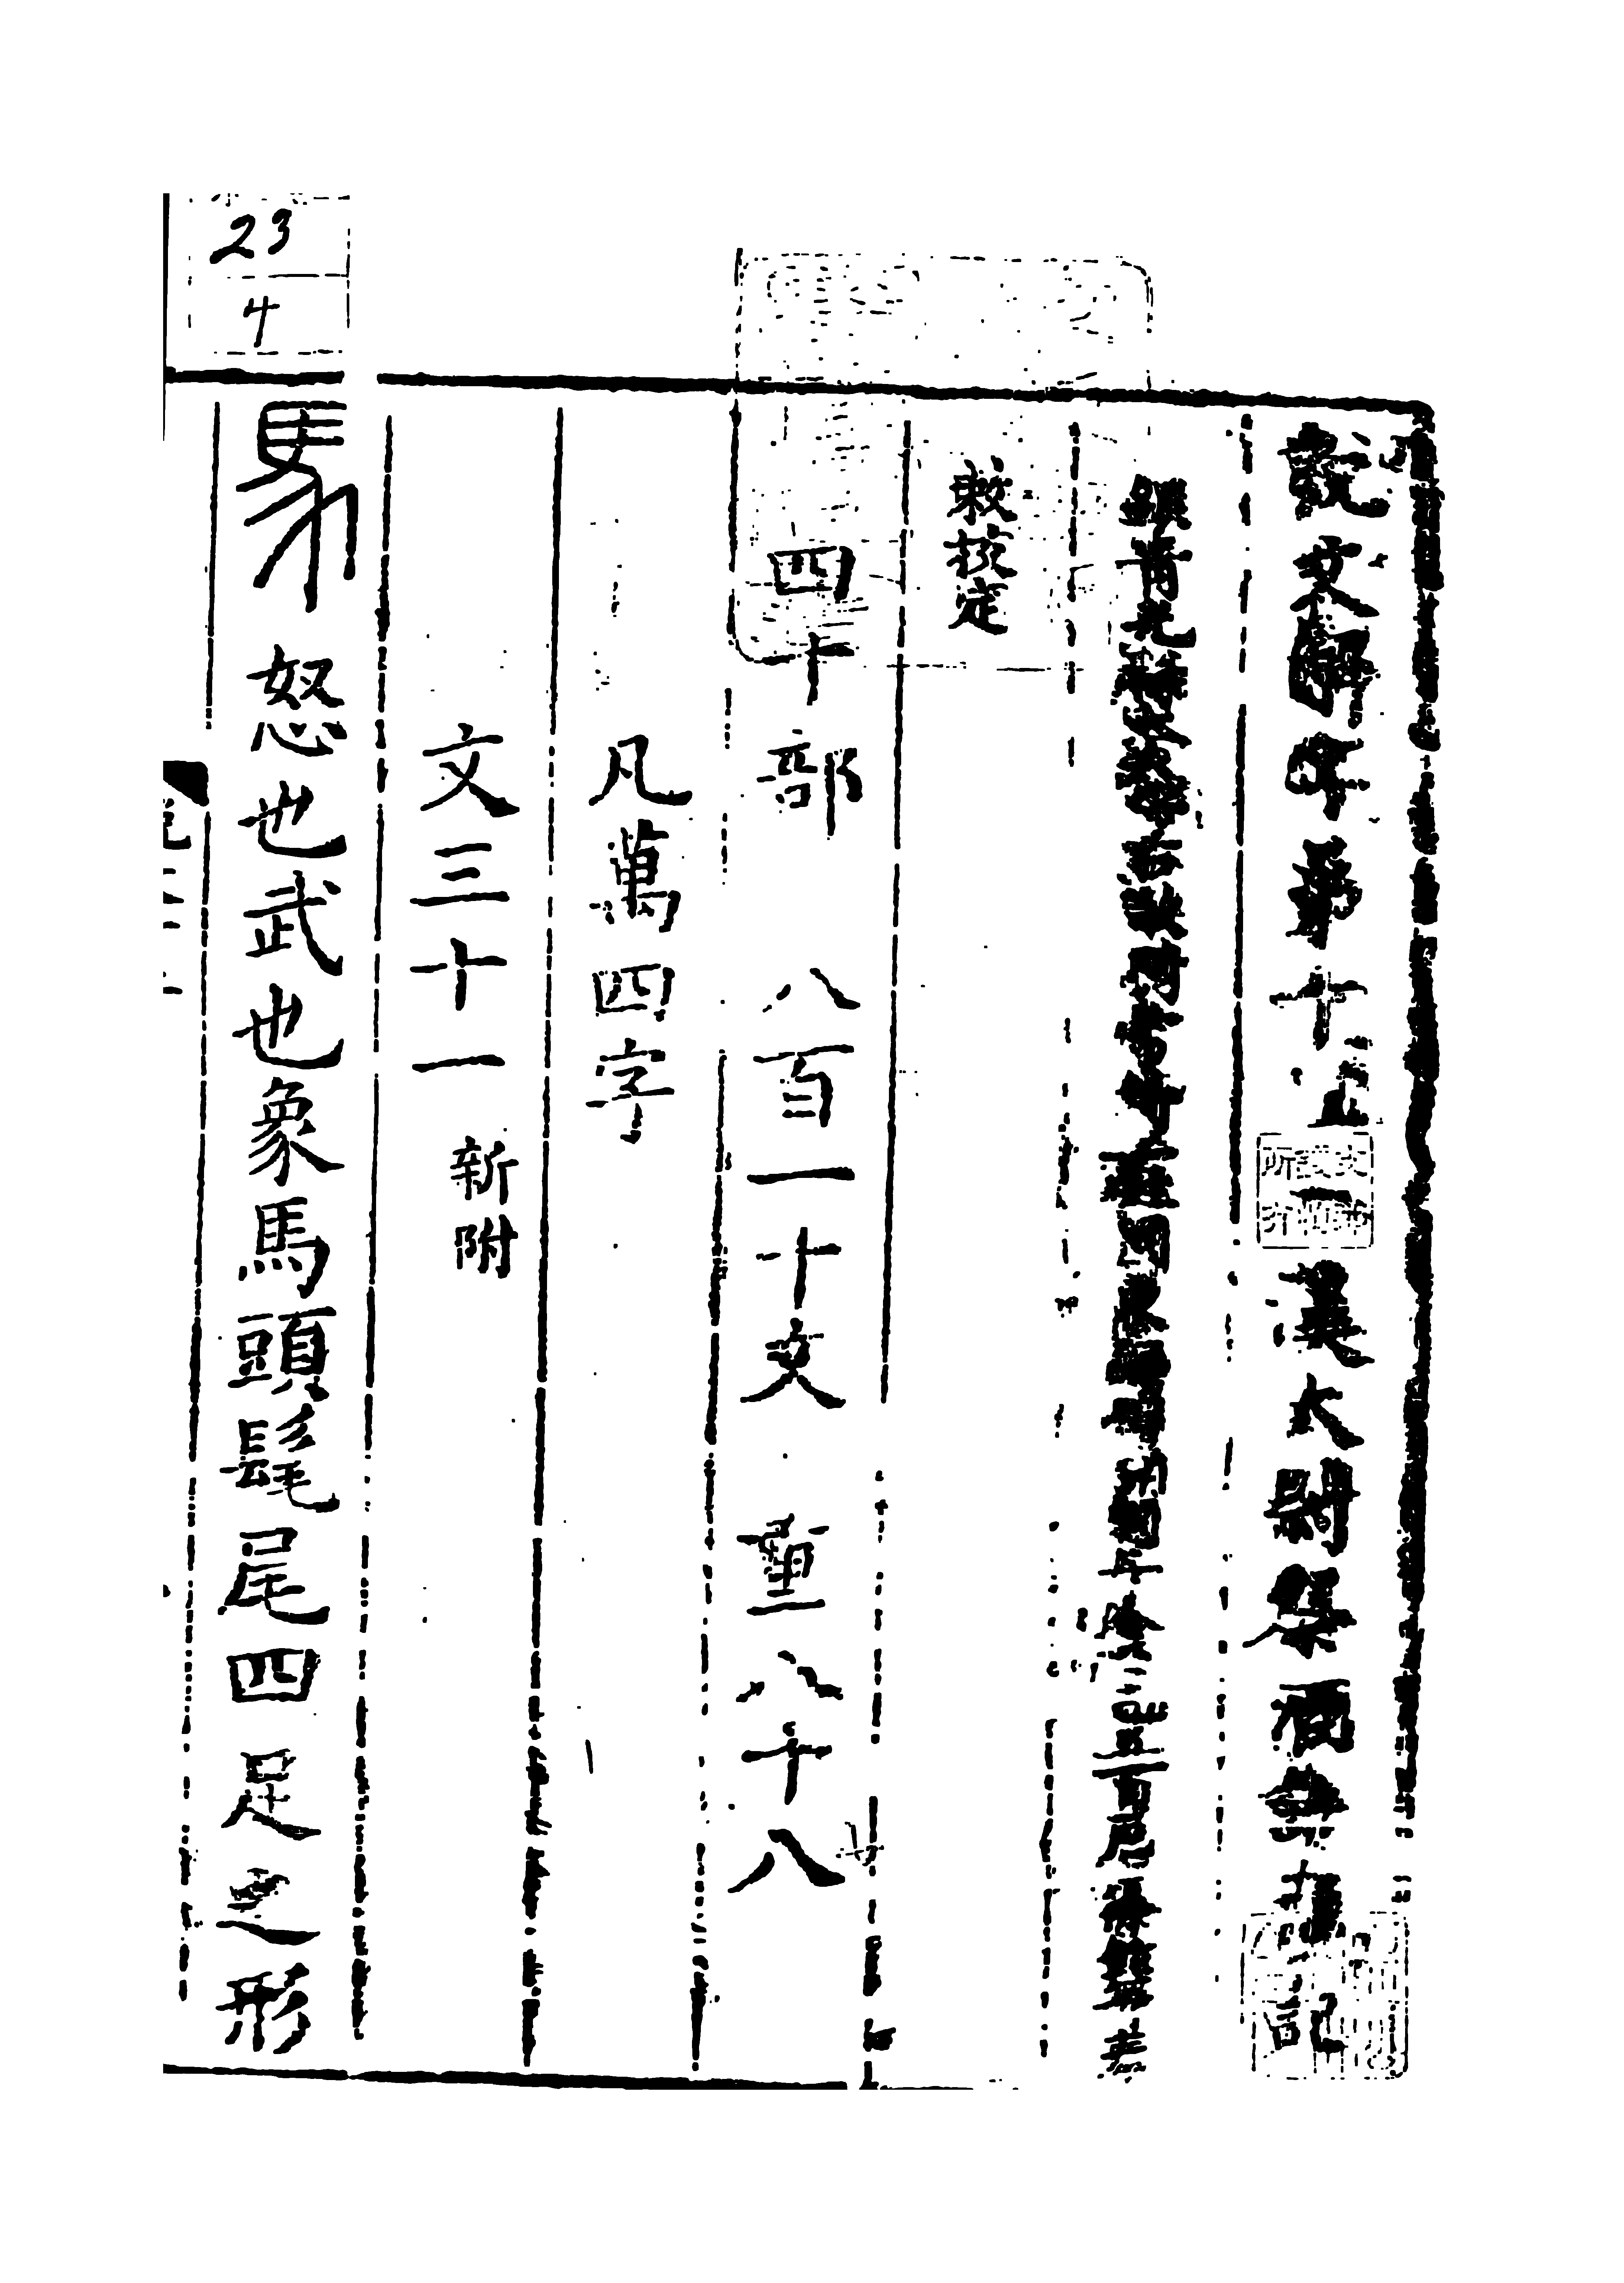 說文解字弟十上
漢太尉祭酒許愼記
銀青光祿大夫守右散騎常侍上柱國東海縣開國子食邑五百戶臣徐鉉等
敕校定
四十部 八百一十文 重八十八
凡萬四字
文三十一 新附
馬 怒也武也象馬頭髦尾四足之形
23
4